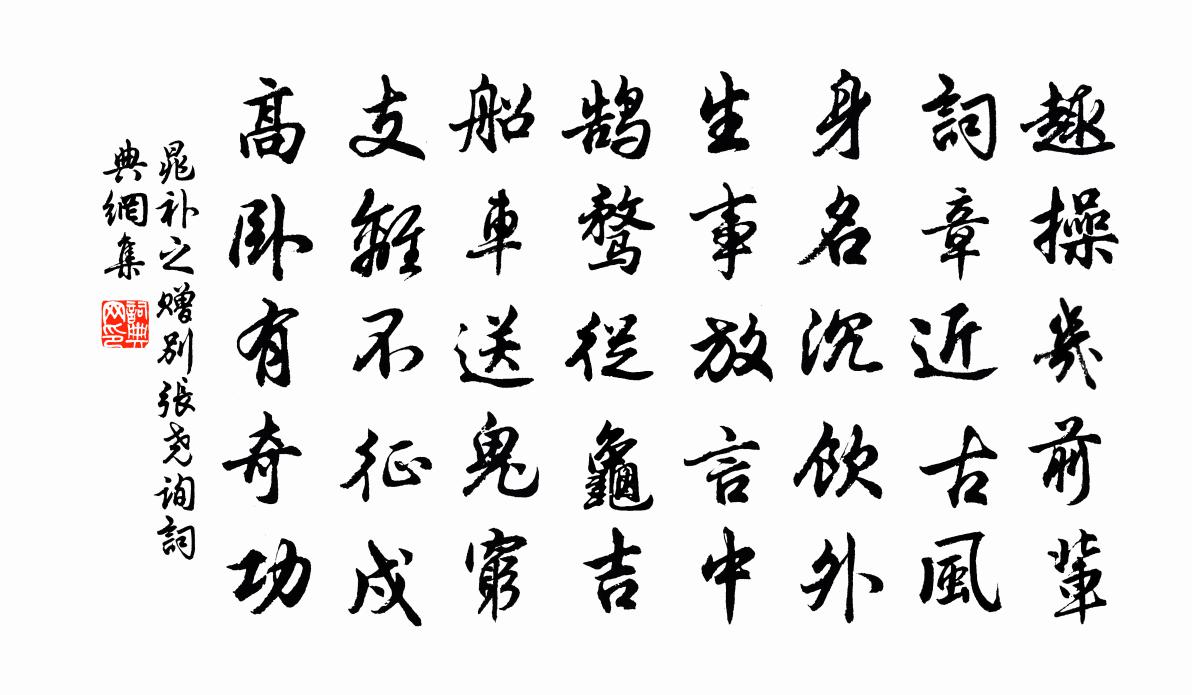 趣操幾前輩
詞章近古風
身名沉飲外
生事放言中
鹄鶩從龜吉
船車送鬼窮
支離不征戍
高卧有奇功
晁补之赠别張尧询詞
典網集
詞典网印